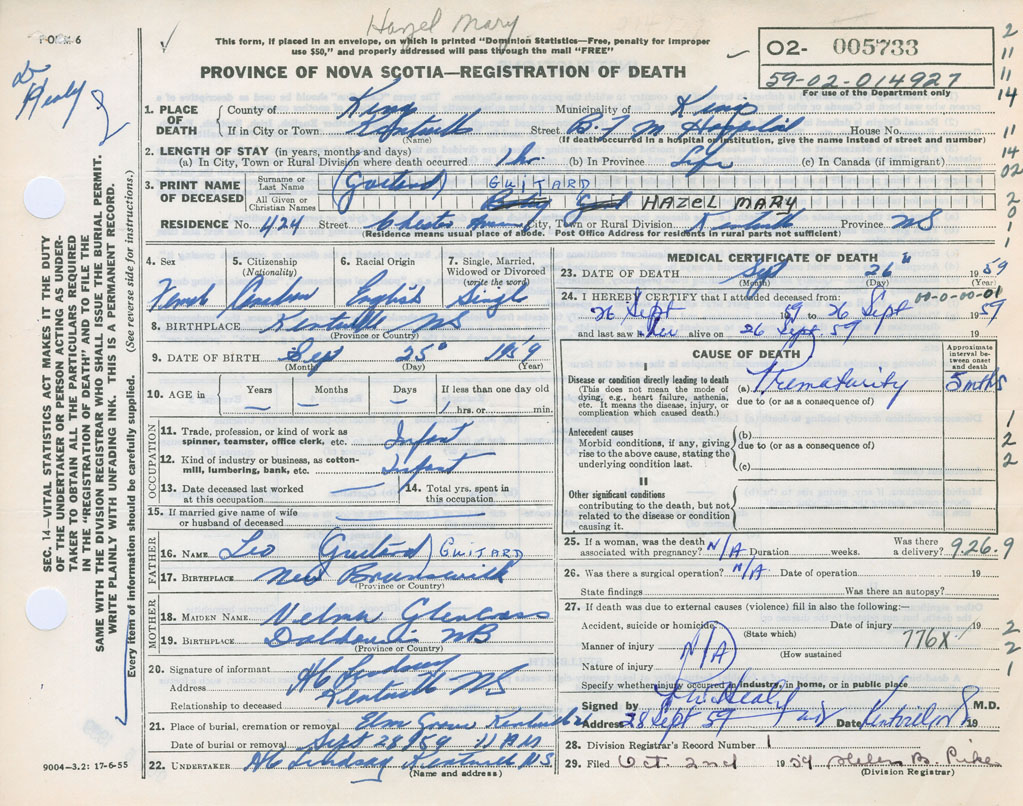 Hazel Mary
FORM 6
This form, if placed in an envelope, on which is printed "Dominion Statistics—Free, penalty for improper
use $50," and properly addressed will pass through the mail "FREE"
02- 005733
59-02-014927
For use of the Department only
Dr Healy
PROVINCE OF NOVA SCOTIA—REGISTRATION OF DEATH
SEC. 14—VITAL STATISTICS ACT MAKES IT THE DUTY
OF THE UNDERTAKER OR PERSON ACTING AS UNDER-
TAKER TO OBTAIN ALL THE PARTICULARS REQUIRED
IN THE "REGISTRATION OF DEATH" AND TO FILE THE
SAME WITH THE DIVISION REGISTRAR WHO SHALL ISSUE THE BURIAL PERMIT.
WRITE PLAINLY WITH UNFADING INK. THIS IS A PERMANENT RECORD.
Every item of information should be carefully supplied. (See reverse side for instructions.)
1. PLACE OF DEATH County of Kings Municipality of Kings
If in City or Town Kentville Street B.F.M. Hospital House No.
(Name) (If death occurred in a hospital or institution, give the name instead of street and number)
2. LENGTH OF STAY (in years, months and days)
(a) In City, Town or Rural Division where death occurred 1 hr. (b) In Province Life (c) In Canada (if immigrant)
3. PRINT NAME OF DECEASED Surname or Last Name GUITARD
All Given or Christian Names Baby Girl HAZEL MARY
RESIDENCE No. 424 Street Chester Avenue City, Town or Rural Division Kentville Province NS
(Residence means usual place of abode. Post Office Address for residents in rural parts not sufficient)
4. Sex 5. Citizenship (Nationality) 6. Racial Origin 7. Single, Married, Widowed or Divorced (write the word)
Female Canadian English Single
8. BIRTHPLACE Kentville NS
(Province or Country)
9. DATE OF BIRTH Sept 25 1959
(Month) (Day) (Year)
10. AGE in Years Months Days If less than one day old
— — 1 hrs. or min.
OCCUPATION
11. Trade, profession, or kind of work as spinner, teamster, office clerk, etc. Infant
12. Kind of industry or business, as cotton-mill, lumbering, bank, etc. Infant
13. Date deceased last worked at this occupation — 14. Total yrs. spent in this occupation —
15. If married give name of wife or husband of deceased
FATHER
16. NAME Leo GUITARD
17. BIRTHPLACE New Brunswick
(Province or Country)
MOTHER
18. MAIDEN NAME Velma Glencross
19. BIRTHPLACE NB
(Province or Country)
20. Signature of informant HC Lindsay
Address Kentville NS
Relationship to deceased
21. Place of burial, cremation or removal Elm Grove Kentville
Date of burial or removal Sept 28/59 11 AM
22. UNDERTAKER HC Lindsay Kentville NS
(Name and address)
9004—3.2: 17-6-55
MEDICAL CERTIFICATE OF DEATH
23. DATE OF DEATH Sept 26 1959
(Month) (Day) (Year)
24. I HEREBY CERTIFY that I attended deceased from: 00-0-00-01
26 Sept 1959 to 26 Sept 1959
and last saw her alive on 26 Sept 59 19
CAUSE OF DEATH
Approximate interval between onset and death
I
Disease or condition directly leading to death
(This does not mean the mode of dying, e.g., heart failure, asthenia, etc. It means the disease, injury, or complication which caused death.)
(a) Prematurity 5 mths
due to (or as a consequence of)
Antecedent causes
Morbid conditions, if any, giving rise to the above cause, stating the underlying condition last.
(b)
due to (or as a consequence of)
(c)
II
Other significant conditions
contributing to the death, but not related to the disease or condition causing it.
25. If a woman, was the death associated with pregnancy? N/A Duration weeks. Was there a delivery? 9.26.9
26. Was there a surgical operation? N/A Date of operation 19
State findings Was there an autopsy?
27. If death was due to external causes (violence) fill in also the following:—
Accident, suicide or homicide Date of injury 19
(State which) 776X
Manner of injury N/A
(How sustained
Nature of injury
Specify whether injury occurred in industry, in home, or in public place
Signed by Healy M.D.
Address 28 Sept 59 Date Kentville NS 19
28. Division Registrar's Record Number 1
29. Filed Oct. 2nd 1959 Helen B. Pike
(Division Registrar)
2
11
11
14
11
14
02
2
0
1
1
1
2
2
2
2
1